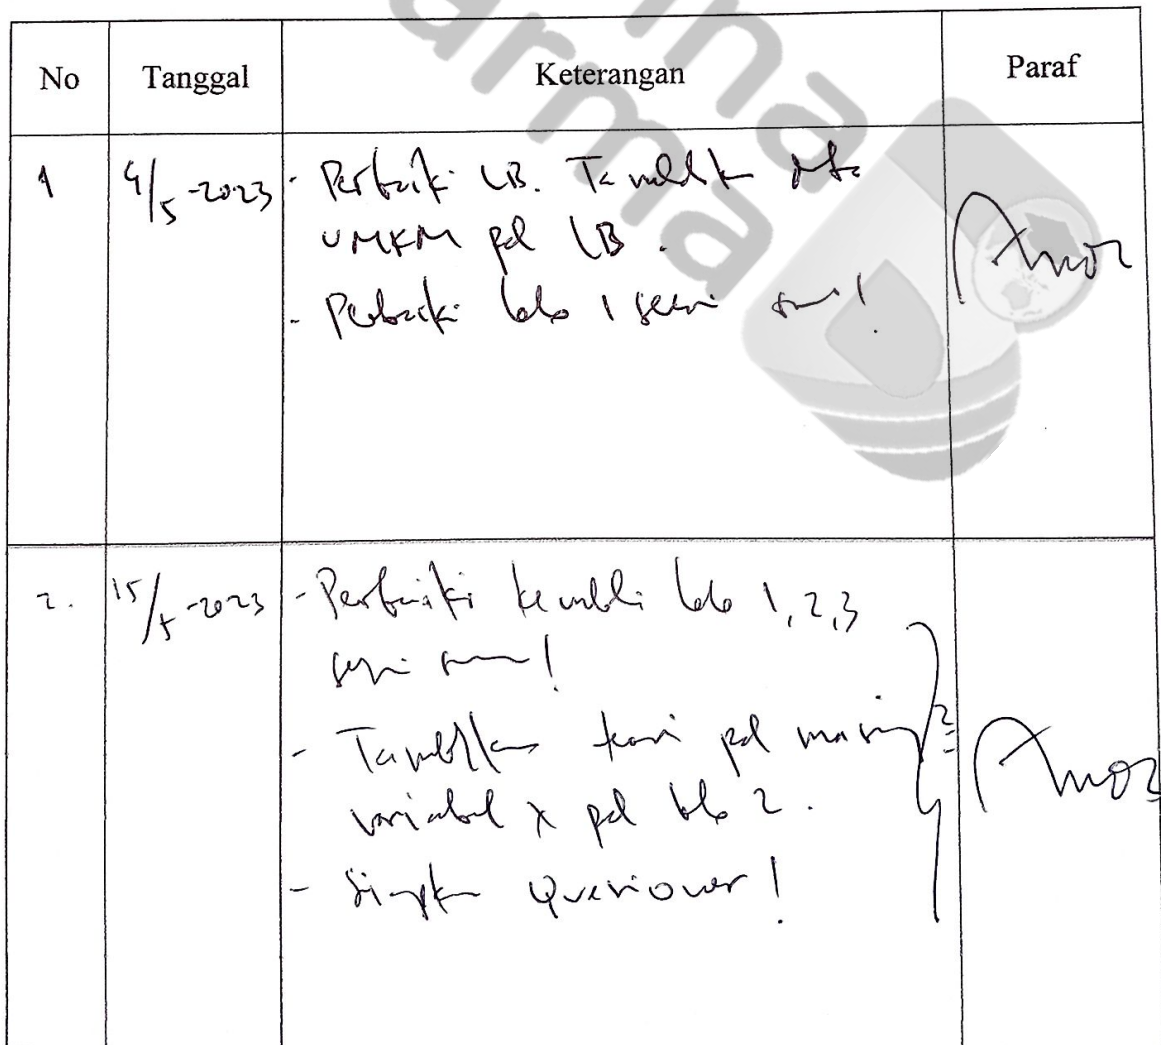 ina
arma
ma
No Tanggal Keterangan Paraf
1 4/5-2023 - Perbaiki LB. data
UMKM pd LB.
- Perbaiki bab 1 sesuai
2. 15/5-2023 - Perbaiki kembali bab 1,2,3
sesuai
- Tambahkan teori pd masing2
variabel x pd bab 2.
- Siapkan Quesioner!